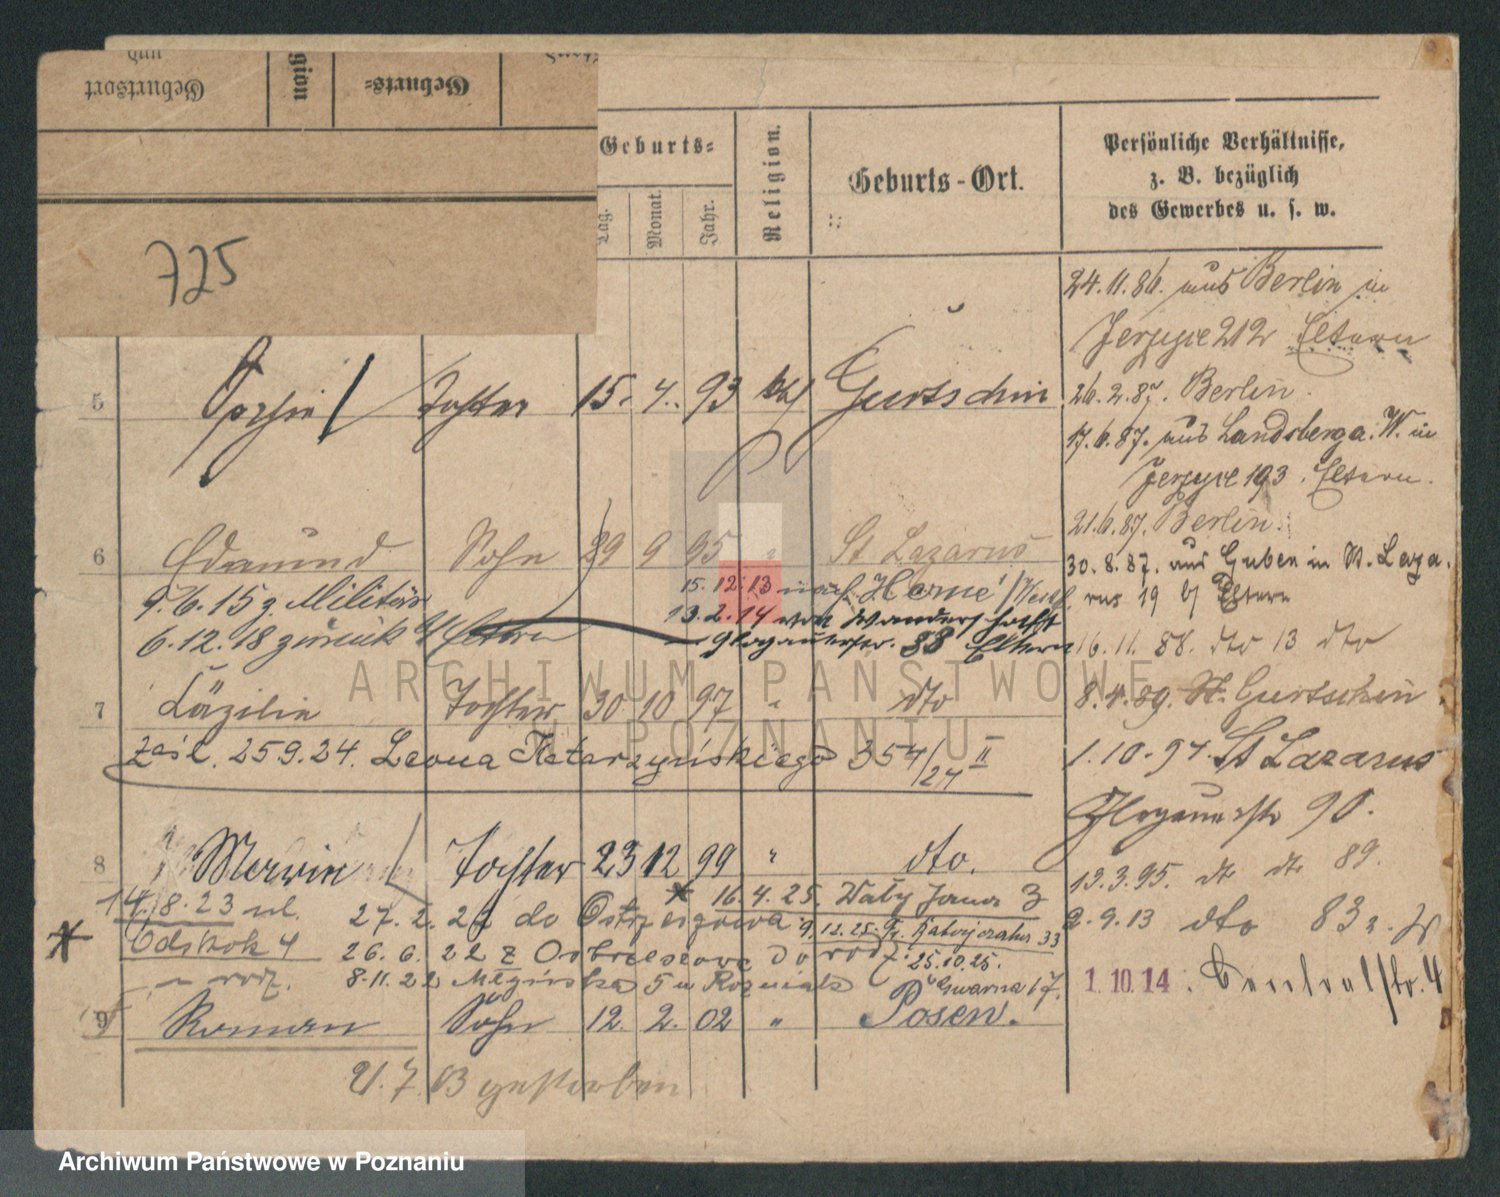 und
Geburtsort
gion
Geburts-
725
Geburts-
Tag.
Monat.
Jahr.
Religion.
Geburts-Ort.
Persönliche Verhältnisse,
z. B. bezüglich
des Gewerbes u. s. w.
24.11.86. aus Berlin in
Jerzyce 212 Eltern
5 Tochter 15. 4. 93 kath Gurtschin
26.2.87. Berlin.
17.6.87. aus Landsberg a. W. in
Jerzyce 193. Eltern.
21.6.87. Berlin.
6 Edmund Sohn 29 9 95 " St Lazarus
30.8.87. aus Guben in St. Laza-
rus 19 b/ Eltern
9.6.15 z. Militär
15.12.13 nach Herne /Westf.
13.2.14 von Wanderschaft
6.12.18 zurück Eltern
Glogauerstr. 88 Eltern
16.11.88. dto 13 dto
7 Cäzilie Tochter 30 10 97 " dto
8.4.89. Gurtschin
zaśl. 25.9.24. Leona Katarzyńskiego 354/24 II
1.10.94. St Lazarus
Glogauerstr 90.
8 Tochter 23 12 99 " dto.
13.3.95. dto dto 89.
14.8.23 ul.
16.4.25. Wały Jana 3
27.2.22 do
2.9.13 dto 83
9.12.25.
33
26.6.22 z do
25.10.25.
u rodz.
8.11.22 5 u
Gwarna 17.
1.10.14.
9 Roman Sohn 12. 2. 02 " Posen.
21.7.03 gestorben
ARCHIWUM PAŃSTWOWE
W POZNANIU
Archiwum Państwowe w Poznaniu